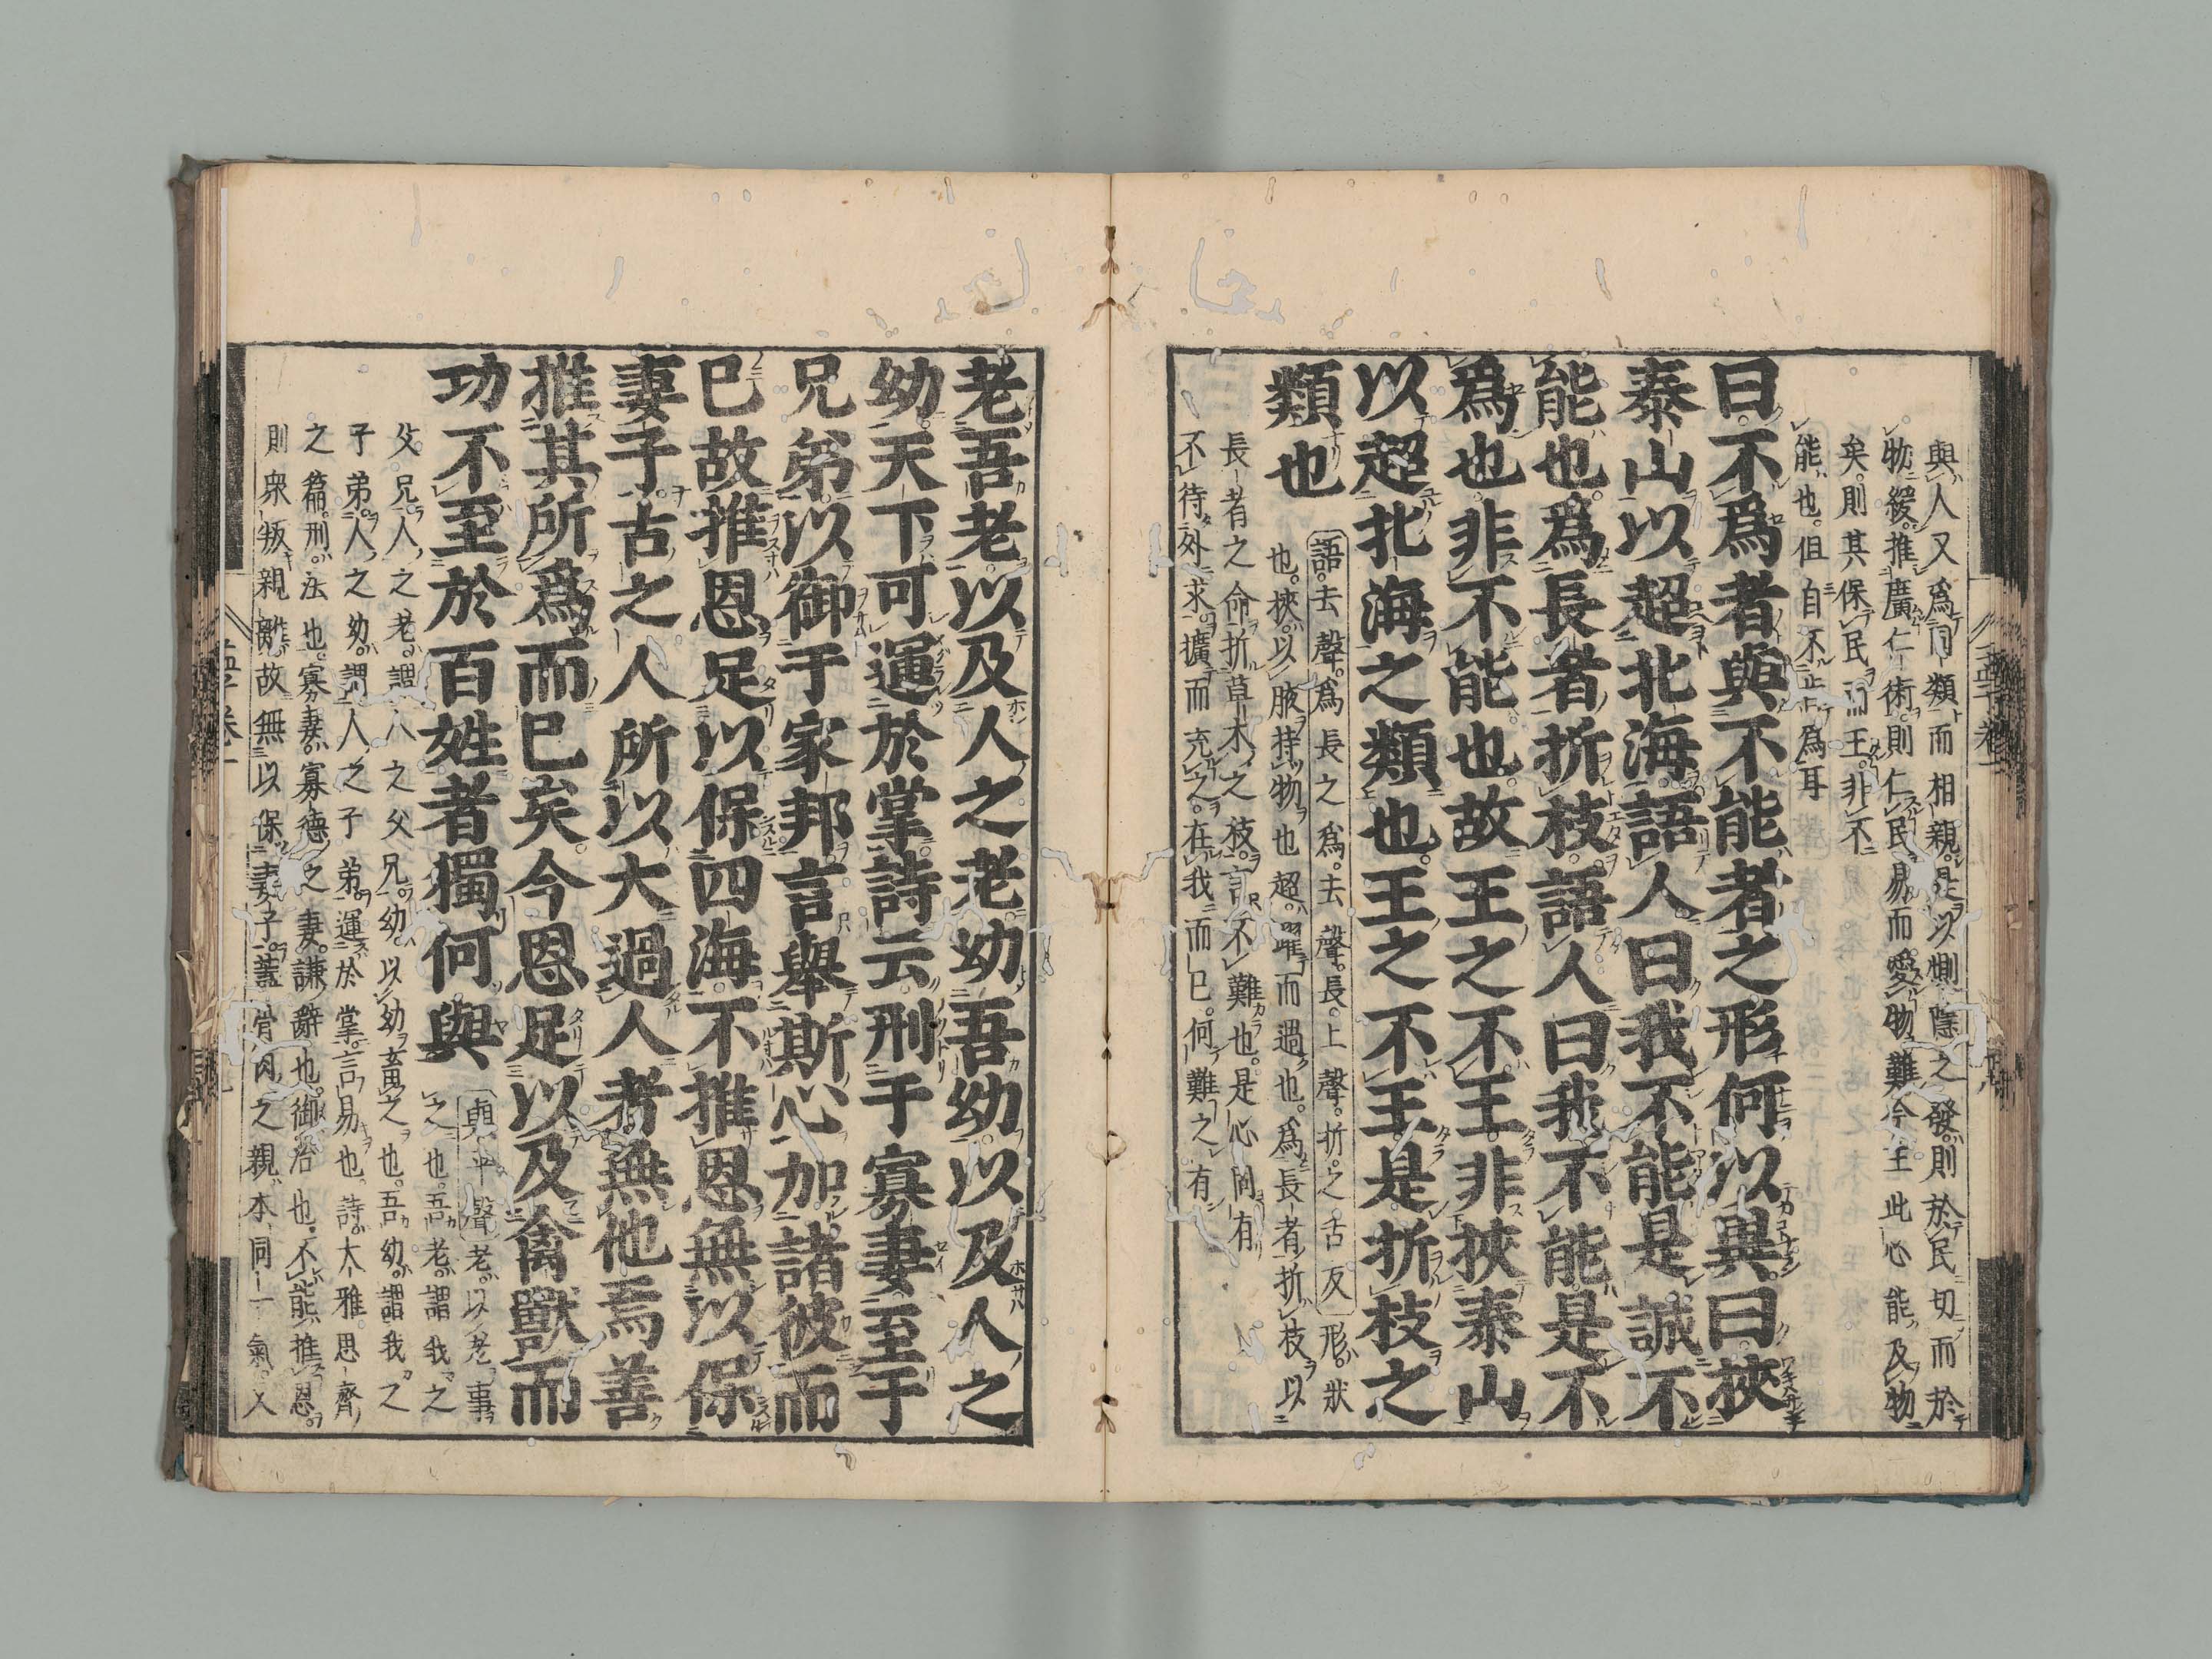 與人又爲同類而相親是以惻隱之發則於民切而於
物緩推廣仁術則仁民易而愛物難今王此心能及物
矣則其保民而王非不
能也但自不肯爲耳
曰不爲者與不能者之形何以異曰挾
泰山以超北海語人曰我不能是誠不
能也爲長者折枝語人曰我不能是不
爲也非不能也故王之不王非挾泰山
以超北海之類也王之不王是折枝之
類也
語去聲爲長之爲去聲長上聲折之舌反形狀
也挾以腋持物也超躍而過也爲長者折枝以
長者之命折草木之枝言不難也是心固有
不待外求擴而充之在我而已何難之有
老吾老以及人之老幼吾幼以及人之
幼天下可運於掌詩云刑于寡妻至于
兄弟以御于家邦言舉斯心加諸彼而
已故推恩足以保四海不推恩無以保
妻子古之人所以大過人者無他焉善
推其所爲而已矣今恩足以及禽獸而
功不至於百姓者獨何與
與平聲老以老事
之也吾老謂我之
父兄人之老謂人之父兄幼以幼畜之也吾幼謂我之
子弟人之幼謂人之子弟運於掌言易也詩大雅思齊
之篇刑法也寡妻寡德之妻謙辭也御治也不能推恩
則衆叛親離故無以保妻子蓋骨肉之親本同一氣又